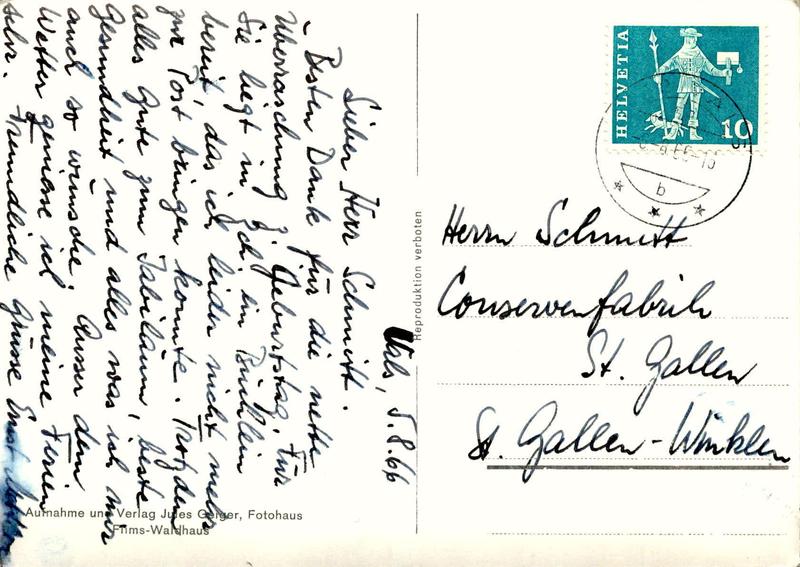 Vals, 5.8.66
Lieber Herr Schmitt.
– Besten Dank für die nette
Überraschung z. Geburtstag. Für
Sie liegt in Zch. ein Päcklein
bereit, das ich leider nicht mehr
zur Post bringen konnte. Trotzdem
alles Gute zum Jubiläum, beste
Gesundheit und alles was ich mir
auch so wünsche. Ausser dem
Wetter geniesse ich meine Ferien
sehr. Freundliche Grüsse Ernst
Aufnahme und Verlag Jules Geiger, Fotohaus
Flims-Waldhaus
Reproduktion verboten
HELVETIA
10
b
Herrn Schmitt
Conservenfabrik
St. Gallen
St. Gallen-Winkeln